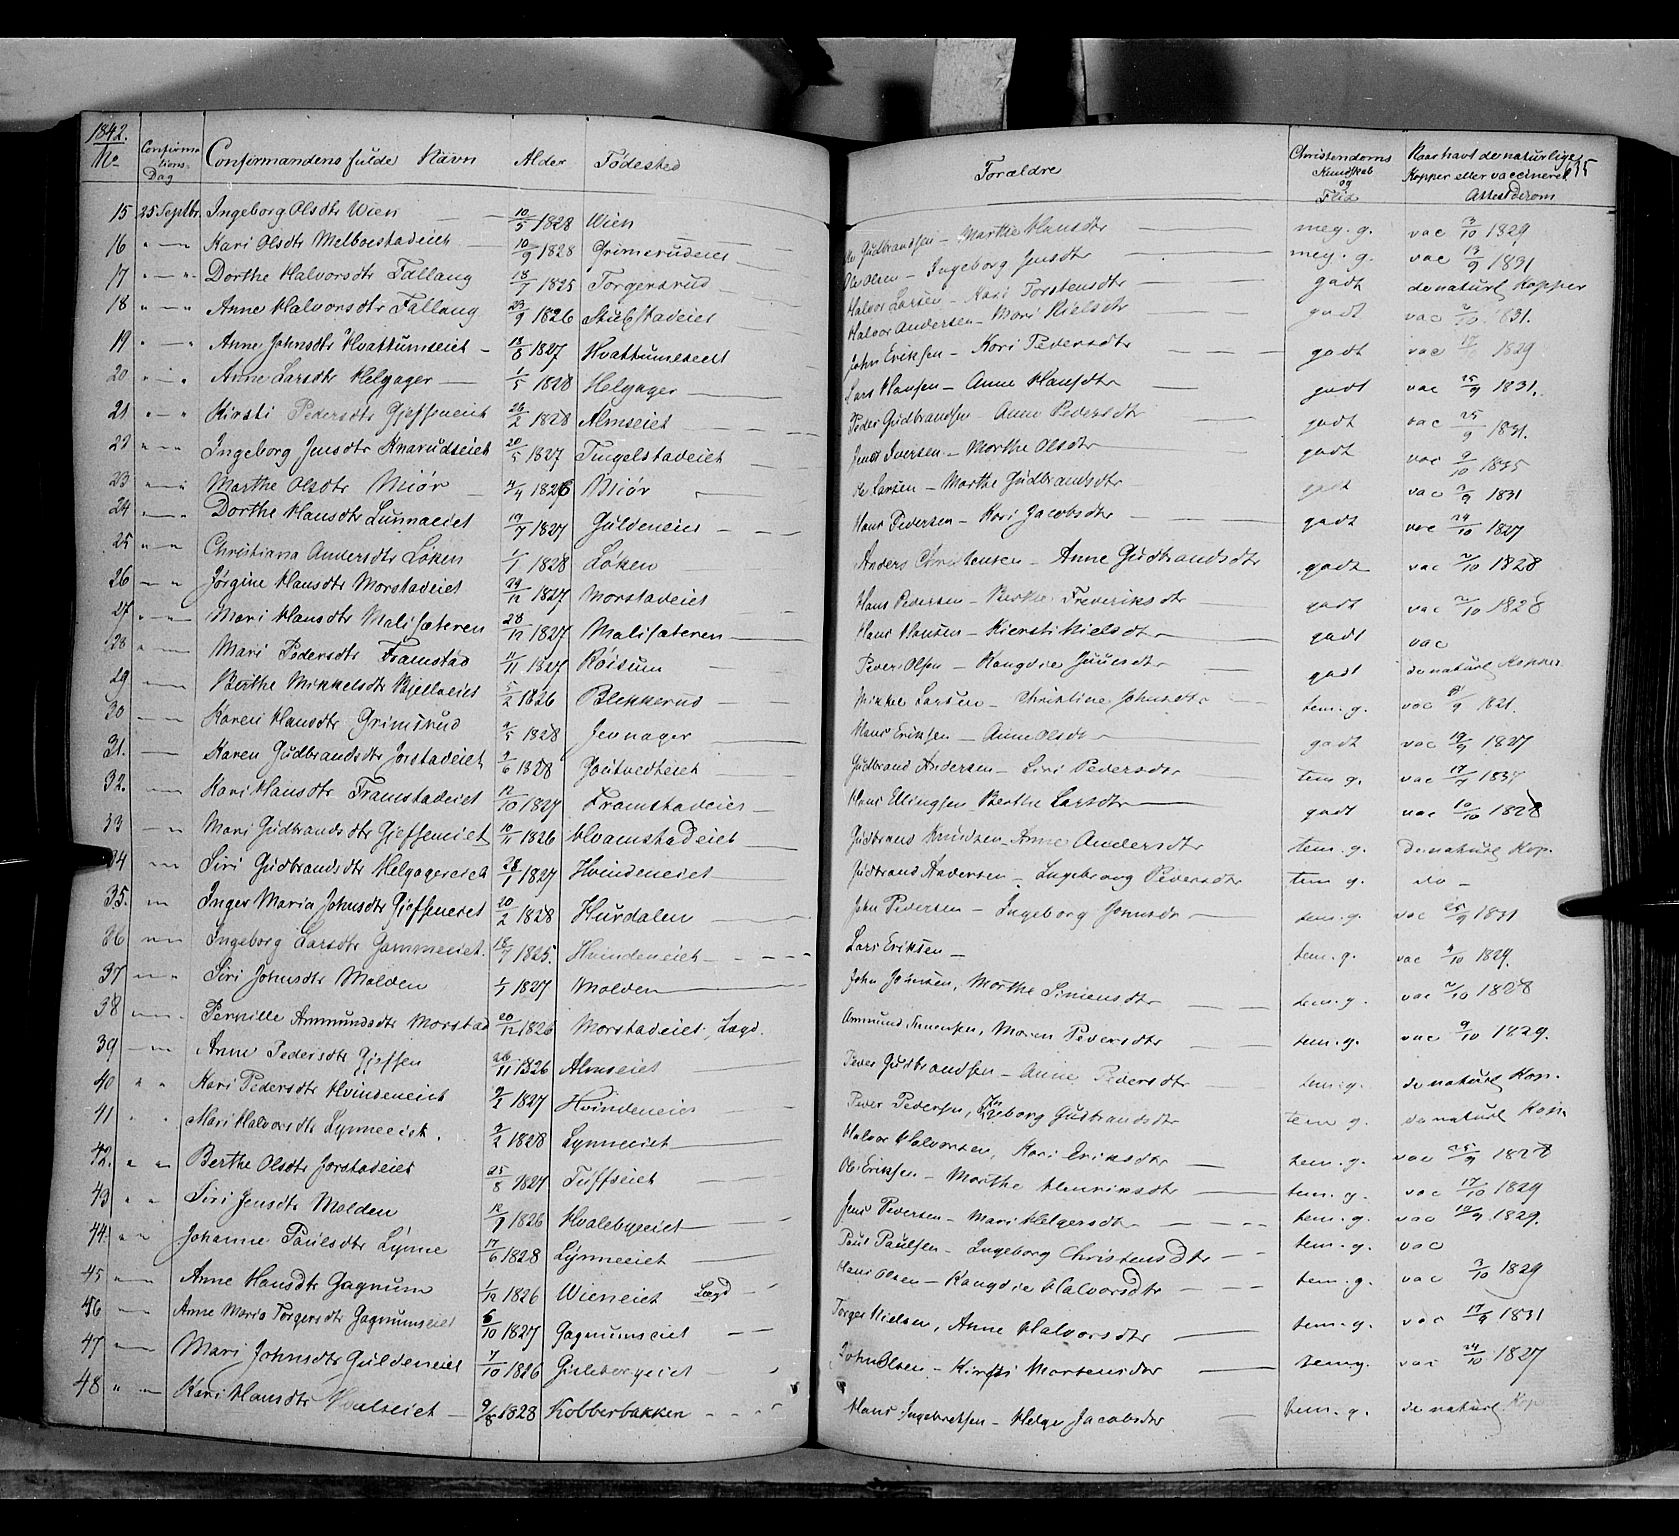 1842.
No Confirmations Dag Confirmandens fulde Navn Alder Fødested Forældre Christendoms Kundskab og Flid Naar havt de naturlige Kopper eller vaccineret Attest derom
15 25 Septbr. Ingeborg Olsdtr Wien 10/5 1828 Wien Gudbrandsen - Marthe Hansdtr meg. g. vac 3/10 1829
16 " Kari Olsdtr Melboestadeiet 10/9 1828 Grimsrudeiet Ole Olsen - Ingeborg Jensdtr meg. g. vac 13/9 1831
17 " Dorthe Halvorsdtr Fallang 18/7 1825 Torgersrud Halvor Larsen - Kari Torstensdtr godt de naturl Kopper
18 " Anne Halvorsdtr Fallang 23/9 1826 Stubstadeiet Halvor Andersen - Mari Nielsdtr godt vac 1831.
19 " Anne Johnsdtr Hvattumseiet 18/8 1827 Hvattumseiet John Eriksen - Kari Pedersdtr godt vac 1829
20 " Anne Larsdtr Helgager 1/5 1828 Helgager Lars Hansen - Anne Hansdtr godt vac 25/9 1831.
21 " Kirsti Pedersdtr Gjefseneiet 26/2 1828 Almseiet Peder Gudbrandsen - Anne Pedersdtr godt vac 25/9 1831.
22 " Ingeborg Jensdtr Knarudseiet 20/5 1827 Tingelstadeiet Jens Iversen - Marthe Olsdtr godt vac 9/10 1835
23 " Marthe Olsdtr Miør 1826 Miør Ole Larsen - Marthe Gudbrandsdtr godt vac 1831
24 " Dorthe Hansdtr Lunnaeiet 19/7 1827 Guldeneiet Hans Pedersen - Kari Jacobsdtr godt vac 24/10 1827
25 " Christiana Andersdtr Løken 1/1 1828 Løken Anders Christensen - Anne Gudbrandsdtr godt vac 2/10 1828
26 " Jørgine Hansdtr Morstadeiet 29/12 1827 Morstadeiet Hans Pedersen - Berthe Frederiksdtr godt vac 2/10 1828
27 " Mari Hansdtr Malisæteren 28/12 1827 Malisæteren Hans Hansen - Kiersti Nielsdtr godt vac
28 " Mari Pedersdtr Framstad 11/11 1827 Røisum Peder Olsen - Rangdie Juuelsdtr godt de naturl Kopper
29 " Berthe Mikkelsdtr Bjellaeiet 1/2 1826 Blekkerud Mikkel Larsen - Christine Johnsdtr tem. g. vac 1821.
30 " Karen Hansdtr Grimsrud 2/5 1828 Jevnager Hans Eriksen - Anne Olsdtr godt vac 19/9 1827
31. " Karen Gudbrandsdtr Jorstadeiet 2/6 1828 Gudbrand Andersen - Siri Pedersdtr tem g. vac 17/7 1837
32. " Kari Hansdtr Framstadeiet 12/10 1827 Framstadeiet Hans Ellingsen Berthe Larsdtr godt vac 10/10 1828
33 " Mari Gudbrandsdtr Gjefseneiet 10/11 1826 Hvamstadeiet Gudbrand Knudsen - Anne Andersdtr tem. g. de naturl Kop.
34 " Siri Gudbrandsdtr Helgagereiet 28/1 1827 Hvindeneiet Gudbrand Andersen - Ingebrong Pedersdtr tem g. do -
35. " Inger Maria Johnsdtr Gjefseneiet 20/2 1828 Hurdalen John Pedersen - Ingeborg Jonsdtr tem. g. vac 25/9 1831
36 " Ingeborg Larsdtr Gammeeiet 18/7 1825. Hvindeneiet Lars Eriksen - tem. g. vac 4/10 1829.
37 " Siri Johnsdtr Molden 1/1 1827 Molden John Johnsen, Marthe Simensdtr tem. g. vac 2/10 1828
38 " Pernille Ammundsdtr Morstad 20/12 1826 Morstadeiet, Lægd. Ammund Simensen, Maren Pedersdtr tem. g. vac 9/10 1829.
39 " Anne Pedersdtr Gjefsen 26/11 1826 Almseiet Peder Gudbrandsen - Anne Pedersdtr tem. g. de naturl Kop.
40 " Kari Pedersdtr Hvindeneiet 2/2 1827 Hvindeneiet Peder Pedersen, Ingeborg Gudbrandsdtr tem g. de naturl Kop.
41 " Mari Halvorsdtr Lynneeiet. 2/2 1828 Lynneeiet Halvor Halvorsen, Kari Eriksdtr tem. g. vac 25/9 1828
42. " Berthe Olsdtr Jorstadeiet 25/8 1827 Tuffseiet Ole Eriksen - Marthe Henriksdtr tem. g. vac 17/10 1829
43 " Siri Jensdtr Molden 12/7 1826 Hvalebyeiet Jens Pedersen - Mari Helgersdtr tem. g. vac 19/9 1829.
44 " Johanne Paulsdtr Lynne 17/6 1828 Lynneeiet Paul Paulsen - Ingeborg Christensdtr tem. g. vac
45 " Anne Hansdtr Gagnum 1/12 1826 Wieneiet Lægd Hans Olsen - Rangdie Halvorsdtr tem. g. vac 3/10 1829
46 " Anne Maria Torgersdtr Gagnumseiet 6/10 1827 Gagnumseiet Torger Nielsen, Anne Halvorsdtr tem. g. vac 17/9 1831
47 " Mari Johnsdtr Guldeneiet 7/10 1826 Gislebergeiet John Olsen - Kirsti Mortensdtr tem g. vac 24/10 1827
48 " Kari Hansdtr Hvalseiet 9/8 1828 Kobberbakken Hans Ingebretsen - Helge Jacobsdtr tem. g. de naturl. Kop